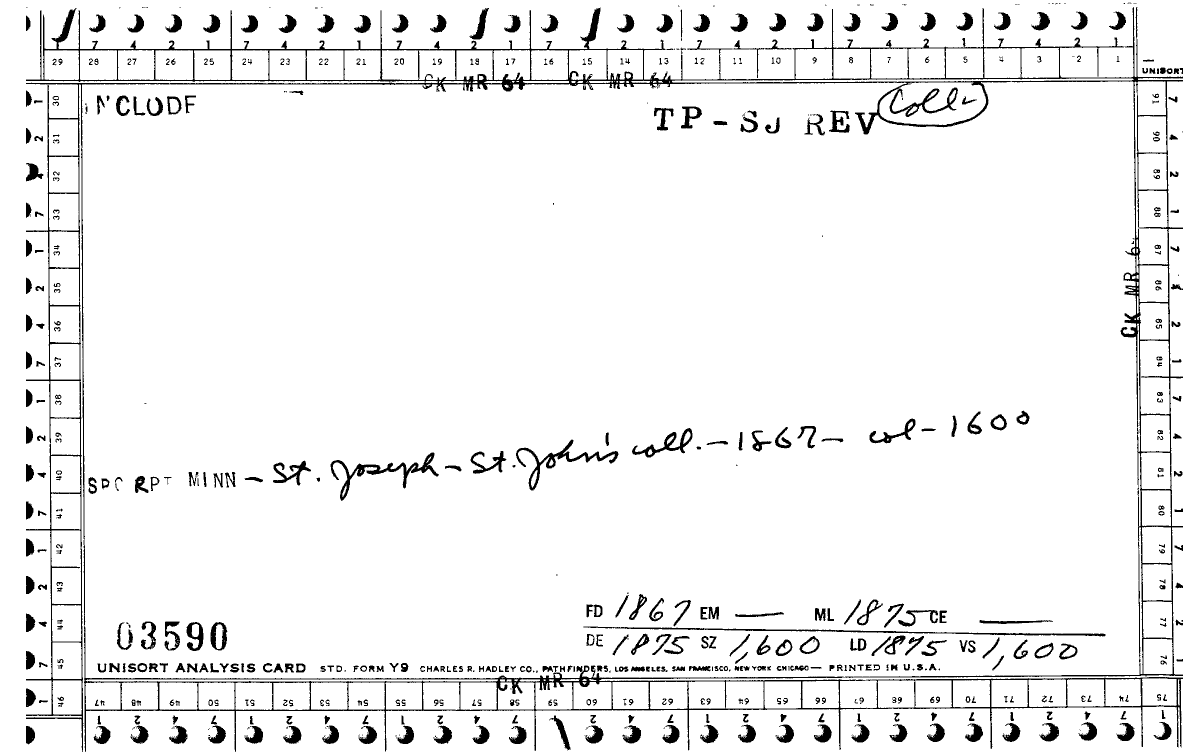 7 4 2 1 7 4 2 1 7 4 2 1 7 4 2 1 7 4 2 1 7 4 2 1
29 28 27 26 25 24 23 22 21 20 19 18 17 16 15 14 13 12 11 10 9 8 7 6 5 4 3 2 1
UNISORT
CK MR 64 CK MR 64
NCLUDE
TP-SJ REV Coll-
30 31 32 33 34 35 36 37 38 39 40 41 42 43 44 45 46
91 90 89 88 87 86 85 84 83 82 81 80 79 78 77 76
CK MR 6
SPC RPT MINN - St. Joseph - St. John's coll. - 1867 - col - 1600
FD 1867 EM — ML 1875 CE —
03590
DE 1875 SZ 1,600 LD 1875 VS 1,600
UNISORT ANALYSIS CARD STD. FORM Y9 CHARLES R. HADLEY CO., PATHFINDERS, LOS ANGELES, SAN FRANCISCO, NEW YORK CHICAGO — PRINTED IN U.S.A.
CK MR 64
47 48 49 50 51 52 53 54 55 56 57 58 59 60 61 62 63 64 65 66 67 68 69 70 71 72 73 74 75
1 2 4 7 1 2 4 7 1 2 4 7 2 4 7 1 2 4 7 1 2 4 7 1 2 4 7 1